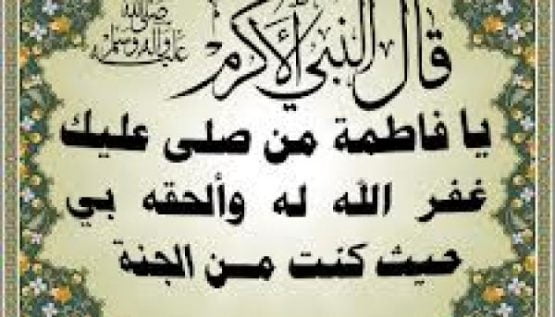 قال النبي الأكرم صلى الله عليه وآله وسلم
يا فاطمة من صلى عليك
غفر الله له وألحقه بي
حيث كنت من الجنة